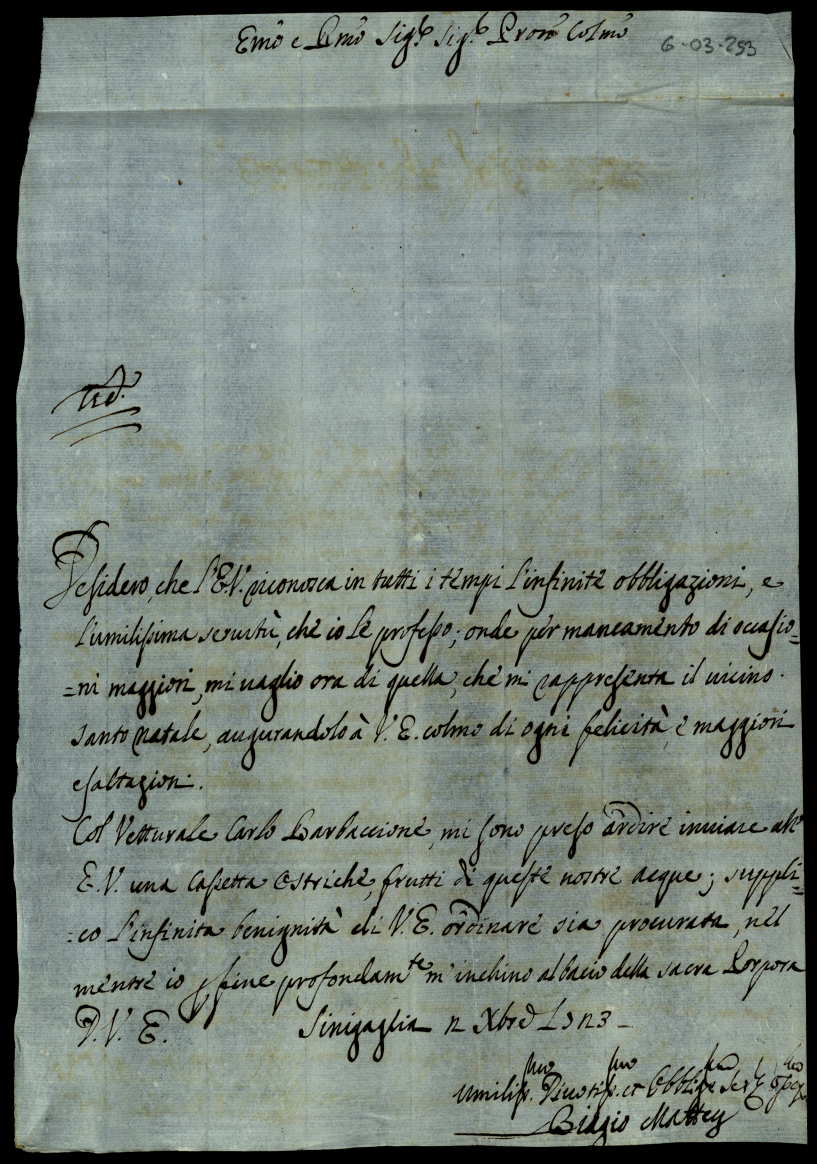 Emo e Rmo Sigr Sigr Pron Colmo
6-03-253
Desidero, che l'E.V. riconosca in tutti i tempi l'infinite obbligazioni, e
l'umilissima seruitù, che io le professo; onde per mancamento di occasio=
=ni maggiori, mi uaglio ora di quella, che mi rappresenta il uicino
santo natale, augurandolo à V. E. colmo di ogni felicità, e maggiori
esaltazioni.
Col Vetturale Carlo Barbaccione, mi sono preso ardire inuiare all'
E. V. una Cassetta Ostriche, frutti di queste nostre acque; suppli=
=co l'infinita benignità di V. E. ordinare sia procurata, nel
mentre io p fine profondamte m'inchino al bacio della sacra Porpora
D. V. E. Sinigaglia Xbre
Umiliss.mo Diuotiss.mo et Obblig.mo Ser.
Biagio Mattey